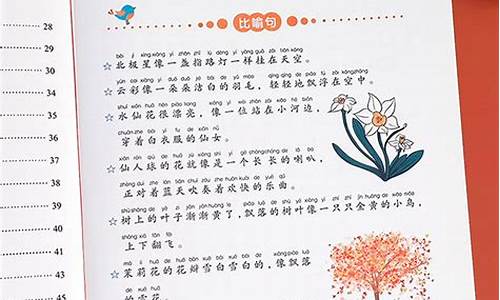 比喻句
běi jí xīng xiàng yì zhǎn zhǐ lù dēng yí yàng guà zài tiān kōng
☆北极星像一盏指路灯一样挂在天空。
yún cai xiàng yì duǒ duǒ jié bái de yǔ máo qīng qīng de piāo fú zài kōng zhōng
☆云彩像一朵朵洁白的羽毛，轻轻地飘浮在空中。
shuǐ xiān huā hěn piào liang xiàng yí wèi zhàn zài xiǎo hé biān
☆水仙花很漂亮，像一位站在小河边，
chuān zhe bái yī fu de xiān nǚ
穿着白衣服的仙女。
xiān rén qiú de huā jiù xiàng shì yí gè cháng cháng de lǎ ba
☆仙人球的花就像是一个长长的喇叭，
zhèng duì zhe lán tiān chuī zòu zhe huān kuài de yuè qǔ
正对着蓝天吹奏着欢快的乐曲。
shù shàng de yè zi jiàn jiàn huáng le piāo luò de shù yè xiàng yì zhī zhī jīn huáng de xiǎo niǎo
☆树上的叶子渐渐黄了，飘落的树叶像一只只金黄的小鸟，
shàng xià fān fēi
上下翻飞。
mò lì huā de huā bàn xuě bái xuě bái de xiàng piāo luò
☆茉莉花的花瓣雪白雪白的，像飘落
的雪花。
28
34
35
36
38
39
40
41
45